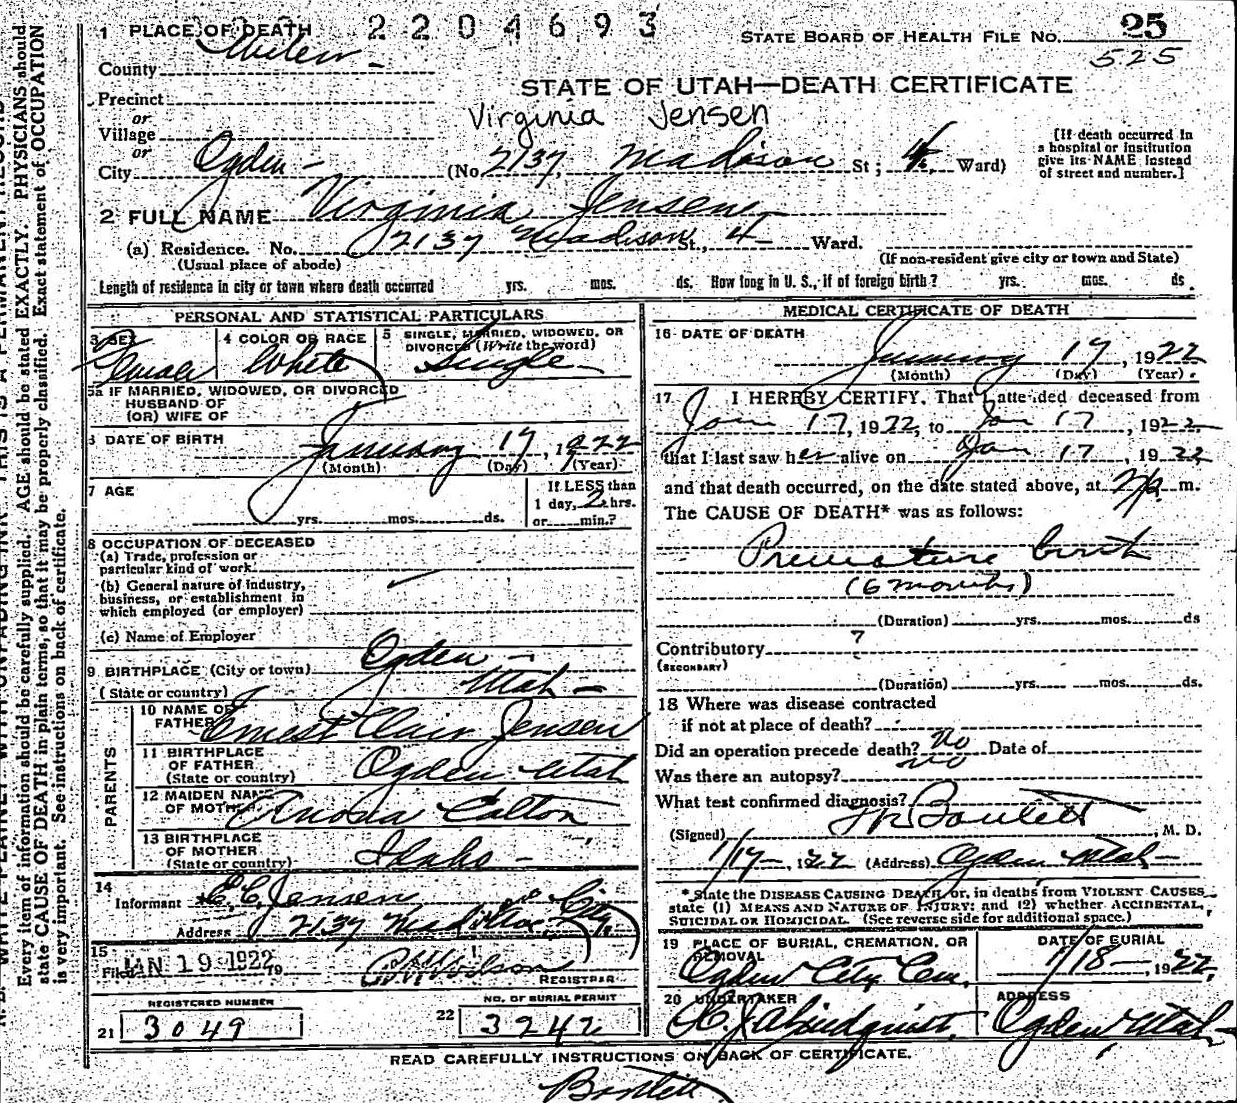 2204693
1 PLACE OF DEATH
STATE BOARD OF HEALTH FILE NO. 25
525
County Weber
STATE OF UTAH—DEATH CERTIFICATE
Precinct
or
Village
Virginia Jensen
or
City Ogden (No. 2137 Madison St; 4 Ward)
[If death occurred in a hospital or institution give its NAME instead of street and number.]
2 FULL NAME Virginia Jensen
(a) Residence. No. 2137 Madison St., 4 Ward.
(Usual place of abode)
(If non-resident give city or town and State)
Length of residence in city or town where death occurred yrs. mos. ds. How long in U. S., if of foreign birth? yrs. mos. ds.
PERSONAL AND STATISTICAL PARTICULARS
3 SEX Female
4 COLOR OR RACE White
5 SINGLE, MARRIED, WIDOWED, OR DIVORCED (Write the word) Single
5a IF MARRIED, WIDOWED, OR DIVORCED
HUSBAND OF
(OR) WIFE OF
6 DATE OF BIRTH January 17, 1922
(Month) (Day) (Year)
7 AGE yrs. mos. ds.
If LESS than
1 day, 2 hrs.
or min.?
8 OCCUPATION OF DECEASED
(a) Trade, profession or
particular kind of work
(b) General nature of industry,
business, or establishment in
which employed (or employer)
(c) Name of Employer
9 BIRTHPLACE (City or town) Ogden
(State or country) Utah
PARENTS
10 NAME OF FATHER Ernest Clair Jensen
11 BIRTHPLACE OF FATHER (State or country) Ogden Utah
12 MAIDEN NAME OF MOTHER
13 BIRTHPLACE OF MOTHER (State or country) Idaho
14
Informant E. C. Jensen
Address 2137 Madison City
15
Filed JAN 19 1922 19 Wilson
REGISTRAR
REGISTERED NUMBER
21 3049
NO. OF BURIAL PERMIT
22 3242
MEDICAL CERTIFICATE OF DEATH
16 DATE OF DEATH
January 17, 1922
(Month) (Day) (Year)
17 I HEREBY CERTIFY, That I attended deceased from
Jan 17, 1922, to Jan 17, 1922
that I last saw her alive on Jan 17, 1922
and that death occurred, on the date stated above, at m.
The CAUSE OF DEATH* was as follows:
Premature birth
(6 months)
(Duration) yrs. mos. ds
Contributory ?
(SECONDARY)
(Duration) yrs. mos. ds.
18 Where was disease contracted
if not at place of death?
Did an operation precede death? No Date of
Was there an autopsy? No
What test confirmed diagnosis?
(Signed) Bartlett, M. D.
1/17, 1922 (Address) Ogden Utah
*State the DISEASE CAUSING DEATH, or, in deaths from VIOLENT CAUSES
state (1) MEANS AND NATURE OF INJURY; and (2) whether ACCIDENTAL,
SUICIDAL OR HOMICIDAL. (See reverse side for additional space.)
19 PLACE OF BURIAL, CREMATION, OR REMOVAL
Ogden City Cem.
DATE OF BURIAL
1/18, 1922
20 UNDERTAKER
Lindquist
ADDRESS
Ogden, Utah
READ CAREFULLY INSTRUCTIONS ON BACK OF CERTIFICATE.
Bartlett
Every item of information should be carefully supplied. AGE should be stated EXACTLY. PHYSICIANS should
state CAUSE OF DEATH in plain terms, so that it may be properly classified. Exact statement of OCCUPATION
is very important. See instructions on back of certificate.